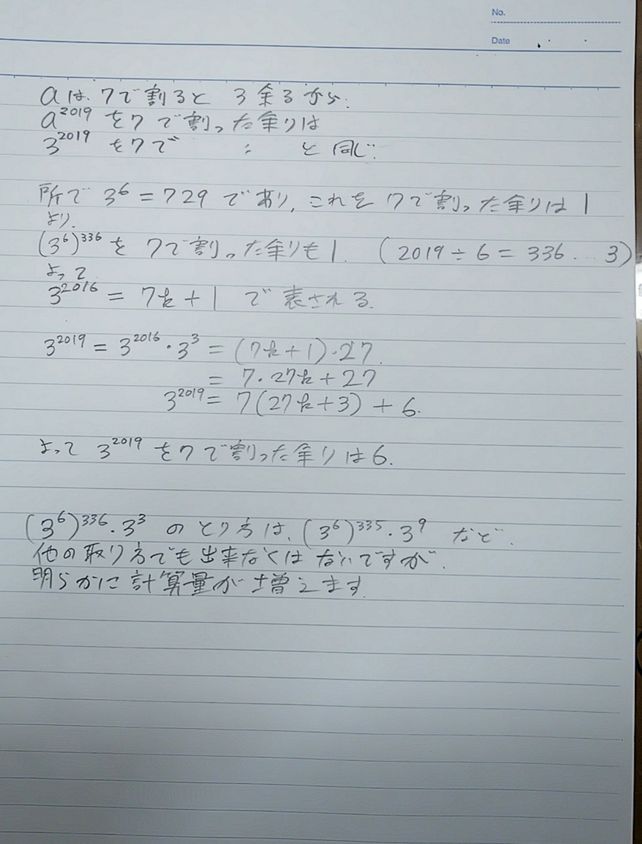 No.
Date
aは、7で割ると 3余るから.
a²⁰¹⁹ を7で割った余りは
3²⁰¹⁹ を7で 〃 と同じ.
所で 3⁶ = 729 であり、これを 7で割った余りは1
より、
(3⁶)³³⁶ を 7で割った余りも1. (2019÷6 = 336…3)
よって
3²⁰¹⁶ = 7k+1 で表される.
3²⁰¹⁹ = 3²⁰¹⁶・3³ = (7k+1)・27
= 7・27k+27
3²⁰¹⁹ = 7(27k+3)+6.
よって 3²⁰¹⁹ を7で割った余りは6.
(3⁶)³³⁶・3³ のとり方は、(3⁶)³³⁵・3⁹ など.
他の取り方でも出来なくはないですが
明らかに計算量が増えます